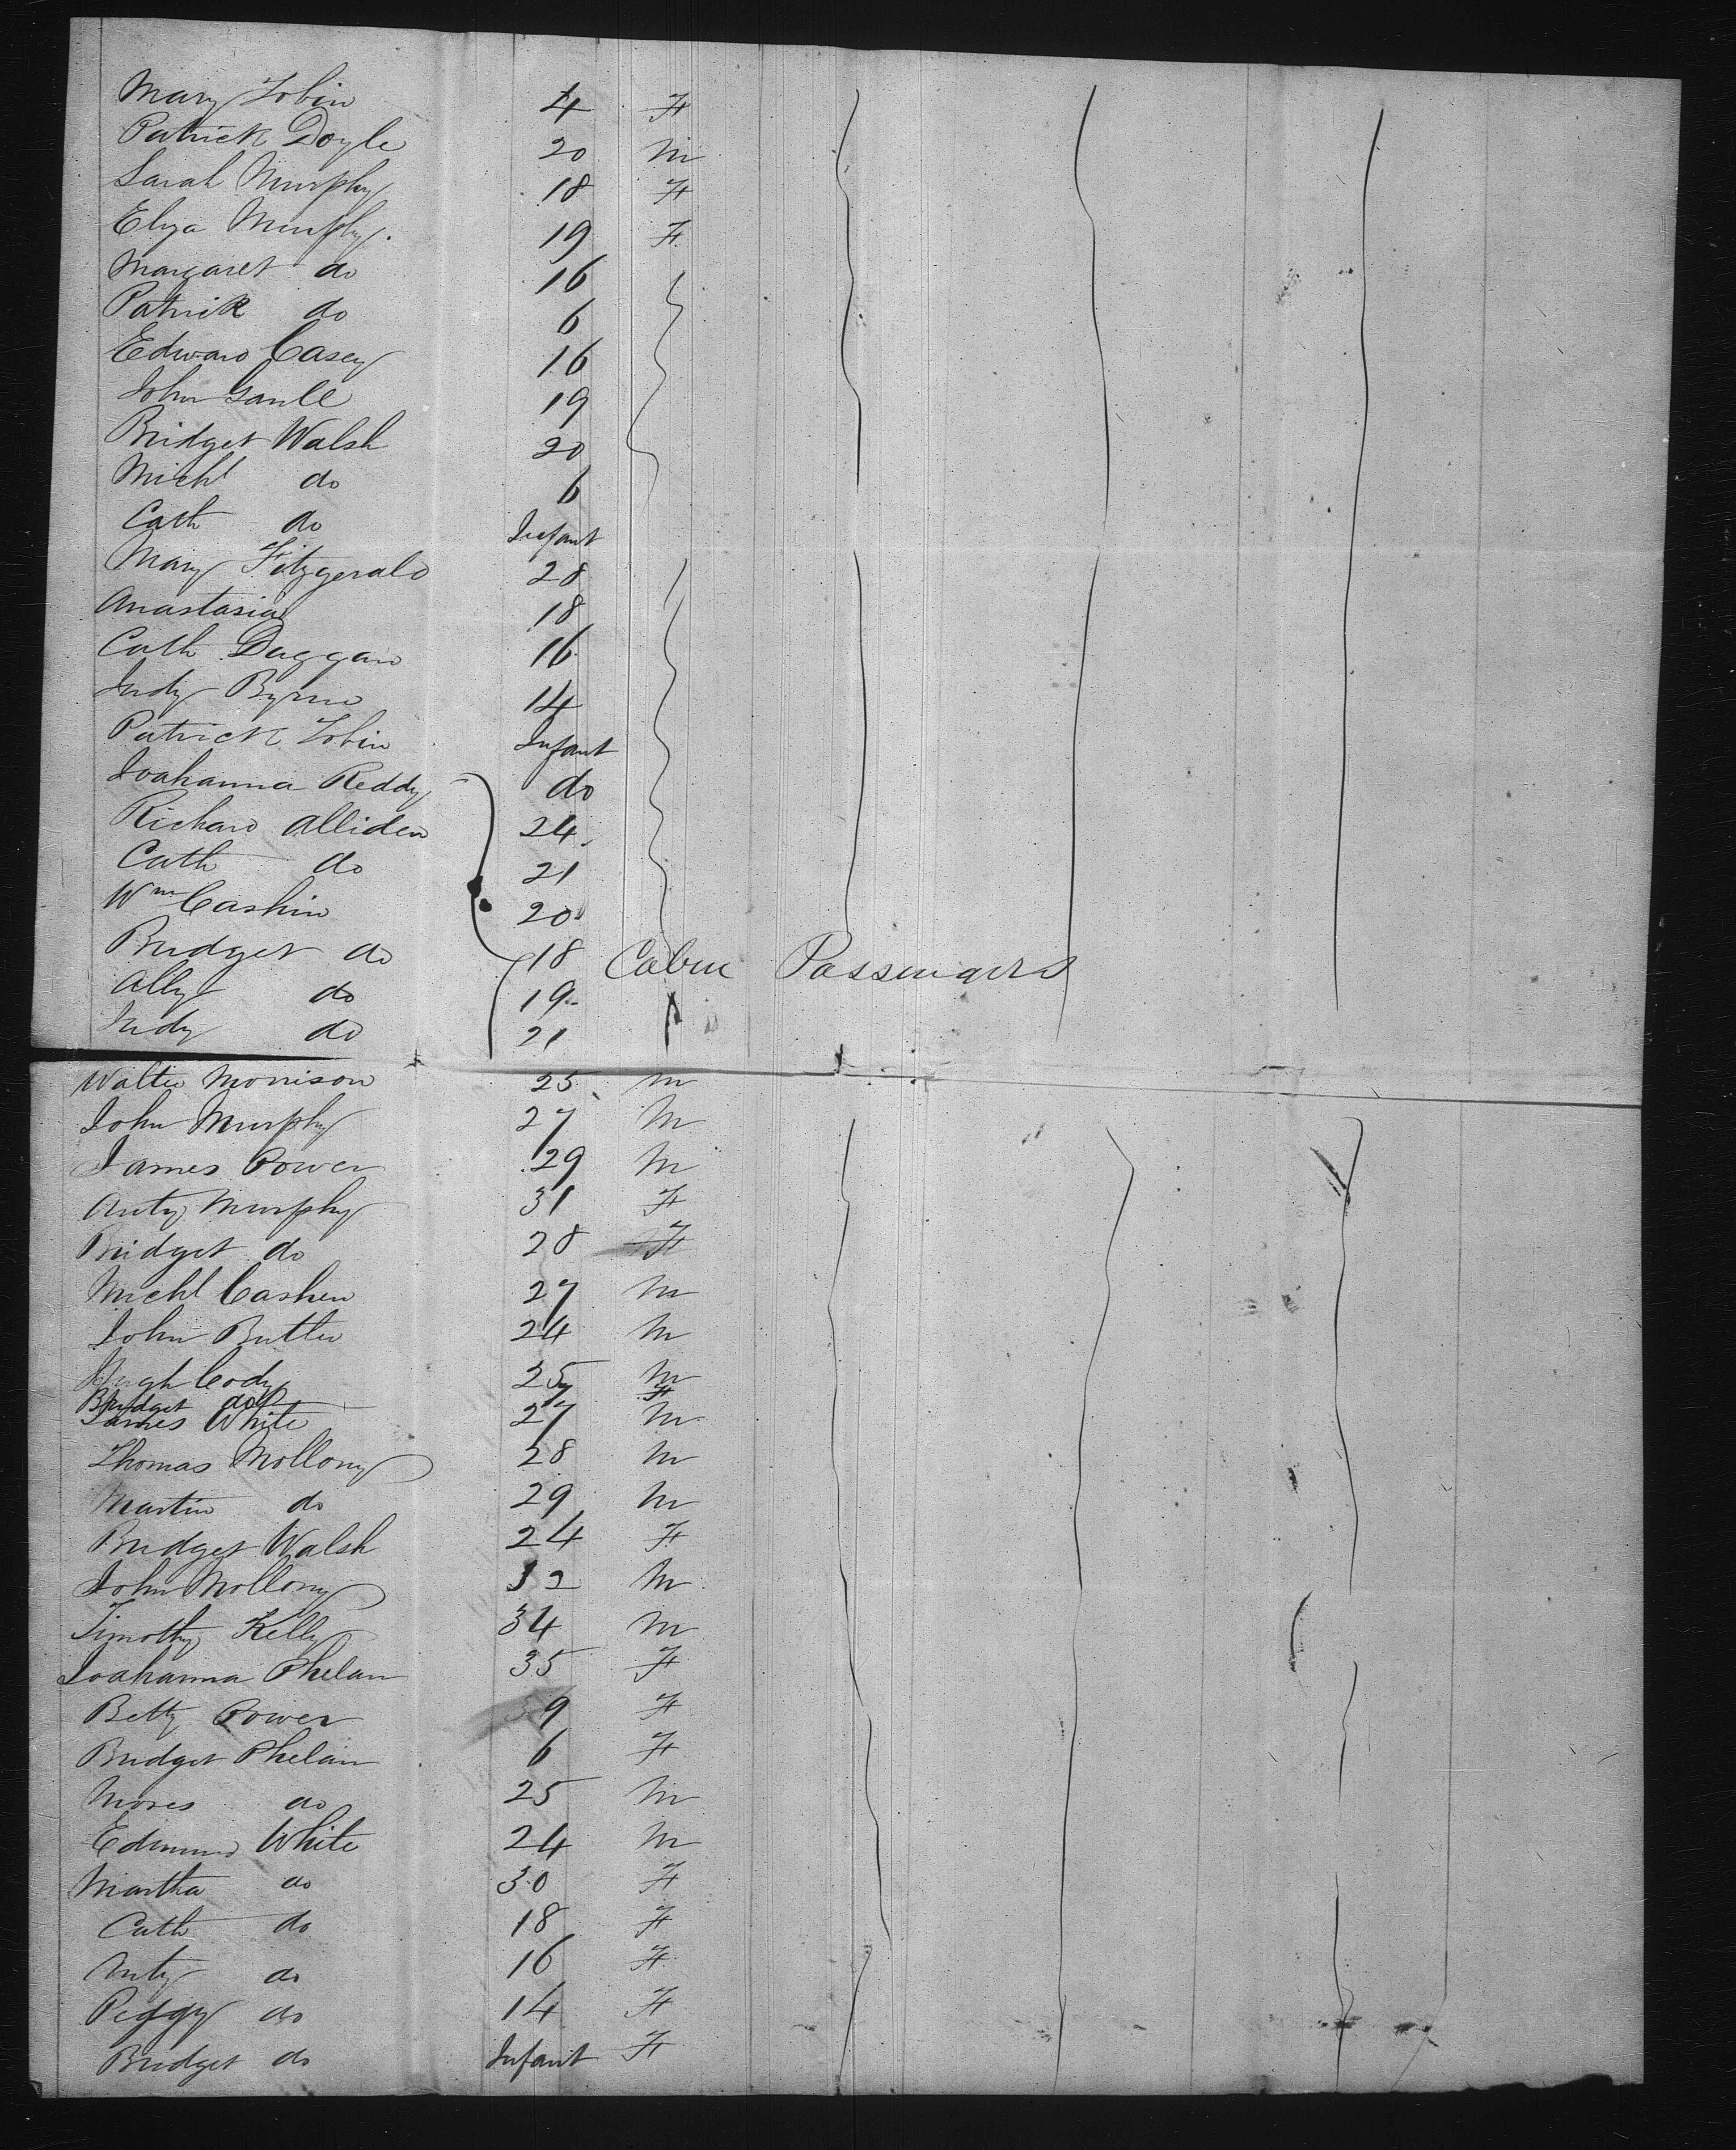 Mary Tobin 4 F
Patrick Doyle 20 M
Sarah Murphy 18 F
Eliza Murphy. 19 F
Margaret do 16
Patrick do 6
Edward Casey 16
John Gaule 19
Bridget Walsh 20
Michl do 6
Cath do Infant
Mary Fitzgerald 28
Anastasia 18
Cath Duggan 16
Judy Byrne 14
Patrick Tobin Infant
Joahanna Reddy do
Richard Alliden 24
Cath do 21
Wm Cashin 20
Bridget do 18 Cabin Passengers
Ally do 19
Judy do 21
Walter Morrison 25 M
John Murphy 27 M
James Power 29 M
Anty Murphy 31 F
Bridget do 28 F
Michl Cashen 27 M
John Butler 24 M
Hugh Cody 25 M
Bridget do F
James White 27 M
Thomas Mollony 28 M
Martin do 29 M
Bridget Walsh 24 F
John Mollony 32 M
Timothy Kelly 34 M
Joahanna Phelan 35 F
Betty Power 9 F
Bridget Phelan 6 F
Moses do 25 M
Edmund White 24 M
Martha do 30 F
Cath do 18 F
Anty do 16 F
Peggy do 14 F
Bridget do Infant F